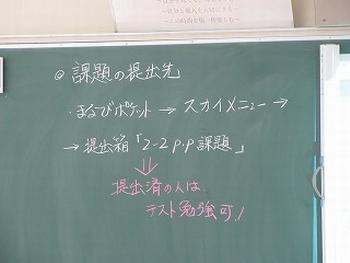 ◎ 課題の提出先
・まなびポケット → スカイメニュー →
→ 提出箱「2-2 P.P 課題」
⇓
提出済の人は、
テスト勉強可！